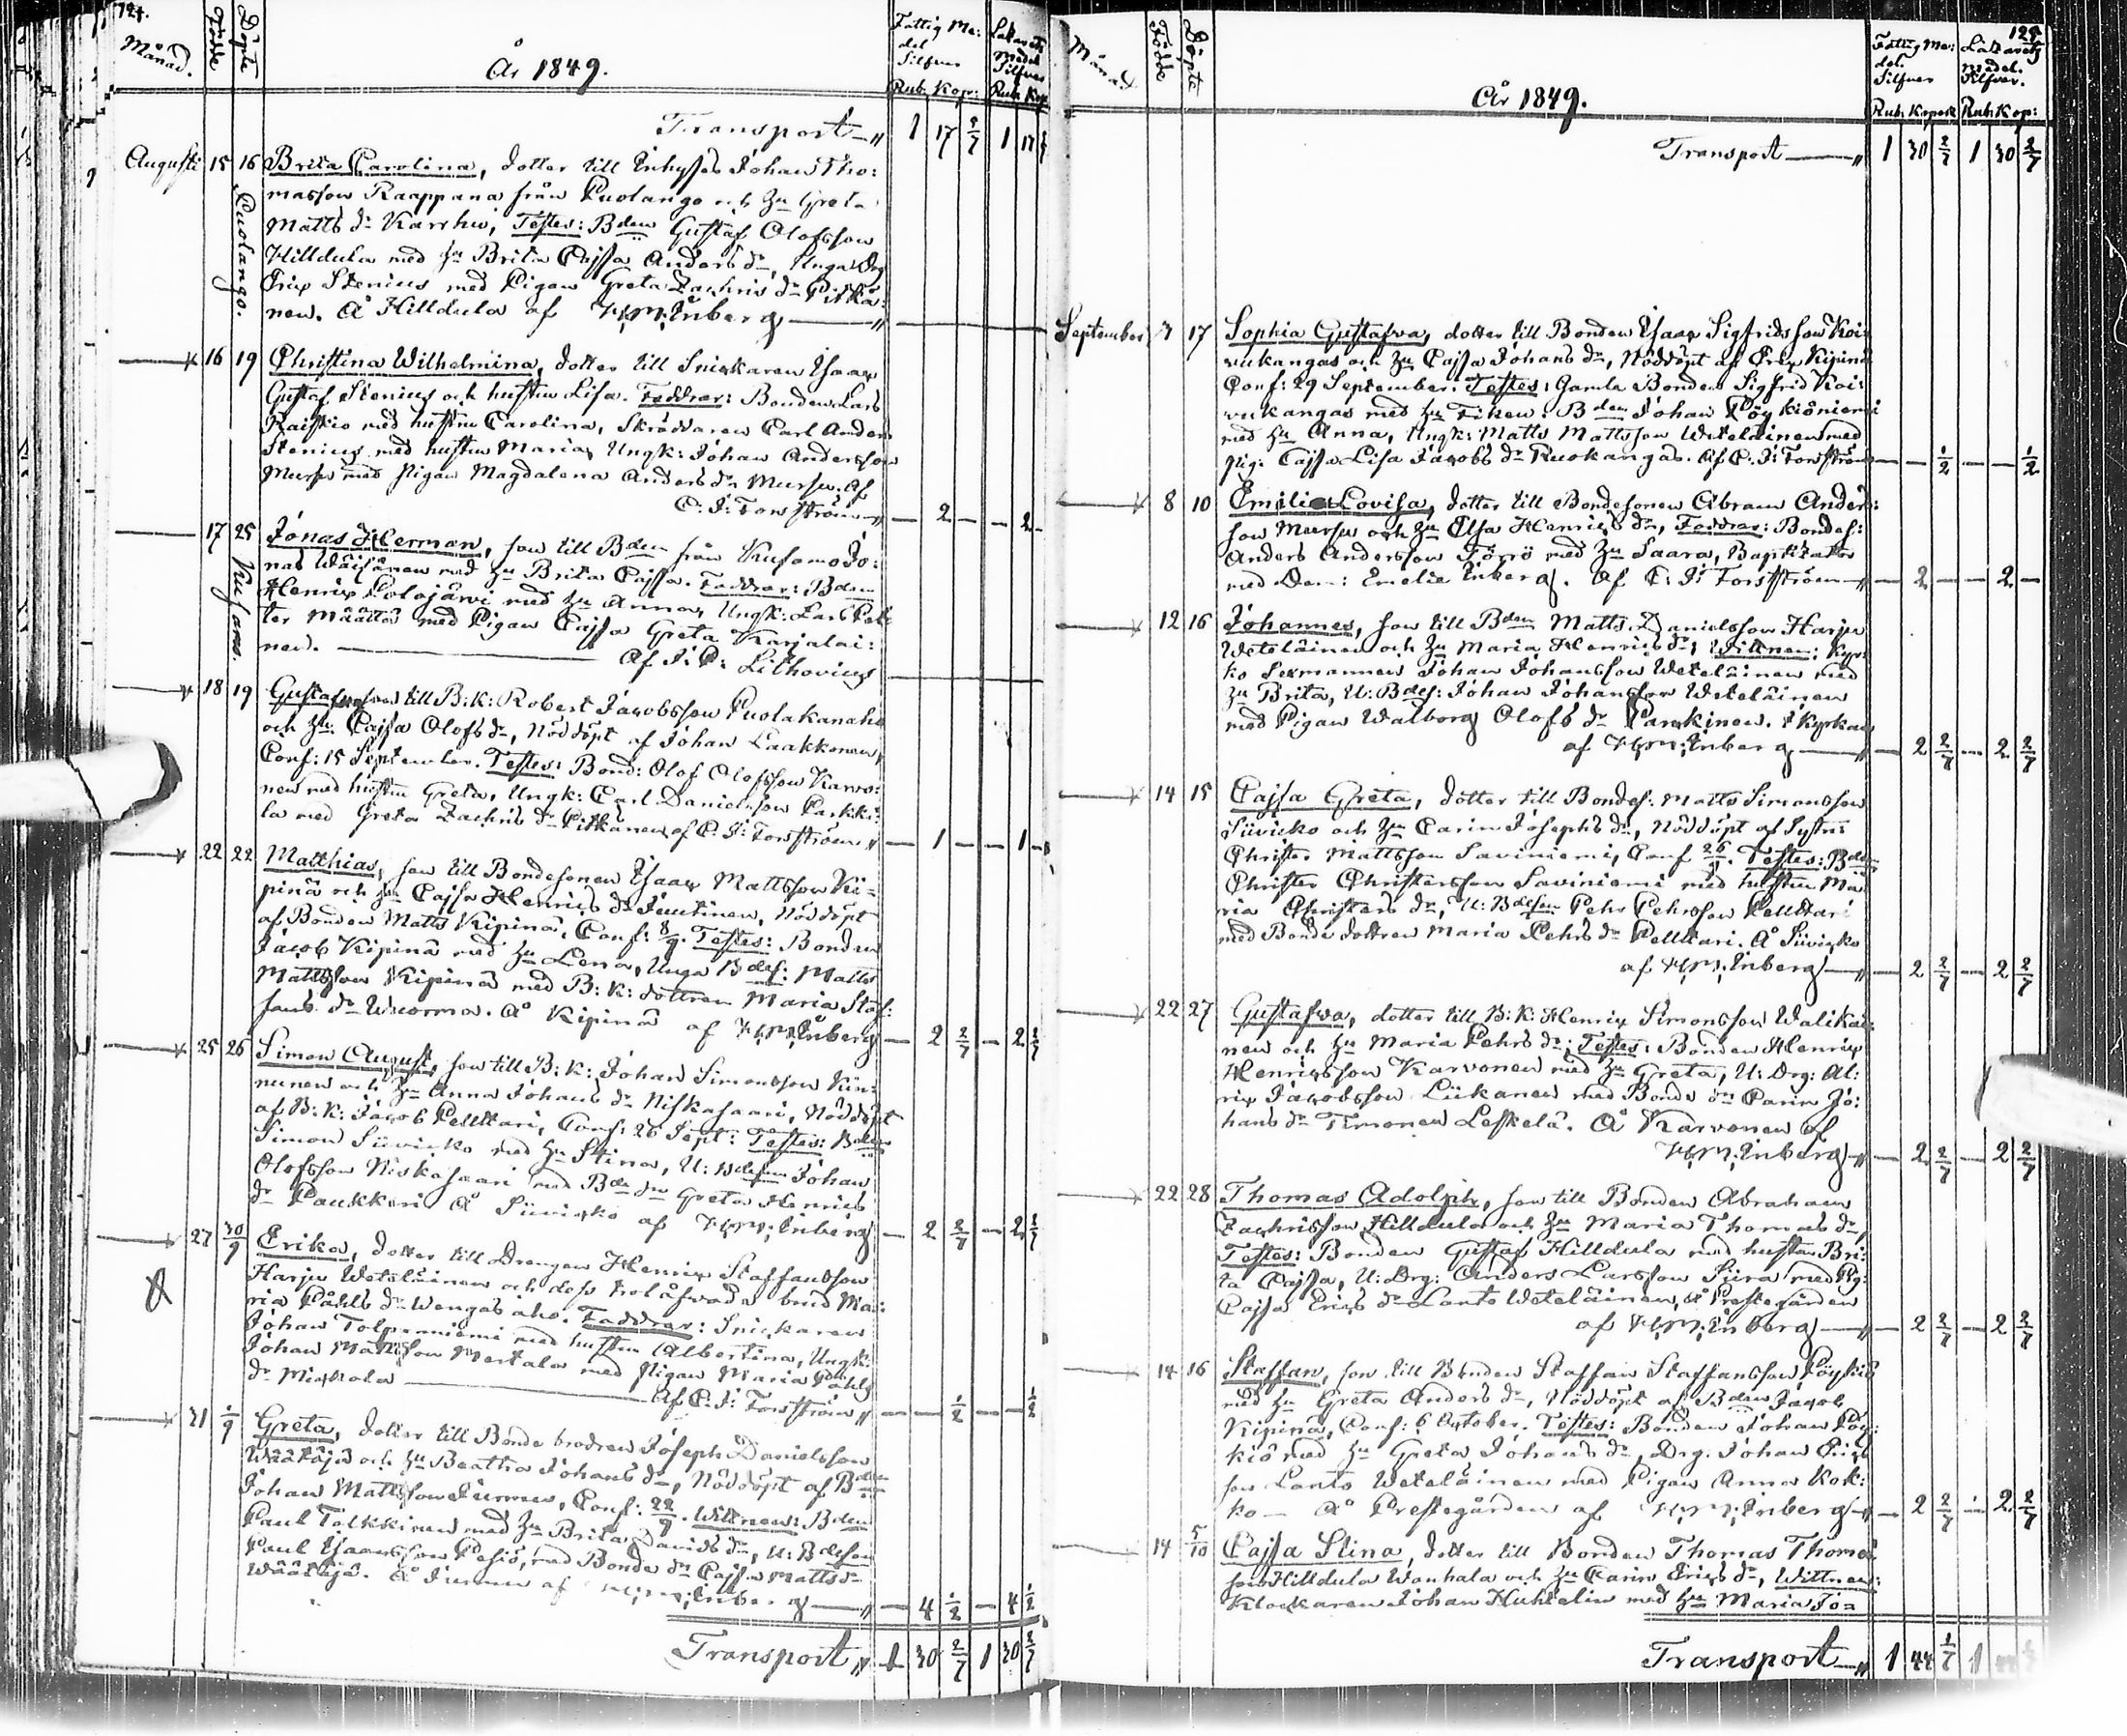 124.
Månad. Födde Döpte
År 1849.
Fattig Me: del Silfver Rub. Kop:
Lasaretts Medel Silfver Rub. Kop.
Transport — " 1 17 2/7 1 17
Augusti 15 16 Brita Carolina, dotter till Inhyses Johan Tho:
Puolango.
massson Raappana från Puolango och hu Greta
Matts dr Karrhu, Testes: Bden Gustaf Olofsson
Hilldula med hu Brita Cajsa Anders dr, Unga Drg
Eric Stenius med Pigan Greta Zachris dr Pitkä:
nen. Å Hilldula af H: M: Enberg — "
16 19 Christina Wilhelmina, dotter till Snickaren Isaac
Gustaf Stenius och hustru Lisa. Faddrar: Bonden Lars
Raiskio med hustru Carolina, Skräddaren Carl Anders
Stenius med hustru Maria, Ungk: Johan Andersson
Mursu med pigan Magdalena Anders dr Mursu. Af
C. J: Forsström " — 2 — — 2 —
17 25 Jonas Herman, son till Bden från Kusamo Jo:
Kusamo.
nas Wäisänen med hu Brita Cajsa. Faddrar: Bden
Henric Lolojärvi med hu Anna, Ungk: Lars Pet
ter Määttä med Pigan Cajsa Greta Karjalai:
nen. — Af J: C: Lithovius
18 19 Gustaf, son till B: K: Robert Jacobsson Puolakanaho
och hu: Cajsa Olofs dr, Nöddöpt af Johan Laakkonen,
Conf: 15 September. Testes: Bond: Olof Olofsson Karvo:
nen med hustru Greta, Ungk: Carl Danielsson Parkki:
la med Greta Zachris dr Pitkänen, af C. J: Forsström " — 1 — — 1 —
22 22 Matthias, son till Bondesonen Isaac Mattsson Ki=
pinä och hu Cajsa Henrics dr Juutinen, Nöddöpt
af Bonden Matts Kipinä, Conf: 8/9. Testes: Bonden
Jacob Kipinä med hu Lena, Unga Bdes: Matts
Mattsson Kipinä med B: K: dottren Maria Staf:
fans dr Wuorma. Å Kipinä af H: M: Enberg — 2 2/7 — 2 2/7
25 26 Simon August, son till B: K: Johan Simonsson Kin:
nunen och hu Anna Johans dr Niskasaari, Nöddöpt
af B: K: Jacob Pelttari, Conf: 26 Sept: Testes: Bden
Simon Siivicko med hu Stina, U: Bdesen Johan
Olofsson Niskasaari med Bde dr Greta Henrics
dr Paukkeri Å Siivicko af H: M: Enberg — 2 2/7 — 2 2/7
27 30/9 Erika, dotter till Drengen Henric Staffansson
Harju Weteläinen och dess trolåfvade brud Ma:
ria Påhls dr Wengasaho. Faddrar: Snickaren
Johan Tolpanniemi med hustru Albertina, Ungk:
Johan Mattsson Mertala med pigan Maria Påhls
dr Mickola — Af C. J: Forsström " — — 1/2 — — 1/2
31 1/9 Greta, dotter till Bonde brodren Joseph Danielsson
Wäätäjä och hu Beatha Johans dr, Nöddöpt af Bden
Johan Mattsson Jurmu, Conf: 22/9. Wittnen: Bden
Paul Tolkkinen med hu Brita Davids dr, U: Bdeson
Paul Isaacsson Pesiö, med Bonde dr Cajsa Matts dr
Wäätäjä. Å Jurmu af H: M: Enberg — " — 4 1/2 — 4 1/2
Transport " 1 30 2/7 1 30 2/7
Månad Födde Döpte
År 1849.
Fattig Me: del. Silfver Rub. Kopek
Lasaretts Medel. Silfver. Rub: Kop:
Transport — " 1 30 2/7 1 30 2/7
September 7 17 Sophia Gustafva, dotter till Bonden Isaac Sigfridsson Koi:
vukangas och hu Cajsa Johans dr, Nöddöpt af Eric Kipinä
Conf: 29 September. Testes: Gamla Bonden Sigfrid Koi:
vukangas med hu Fiken: Bden Johan Pöykiöniemi
med hu Anna, Ungk: Matts Mattsson Weteläinen med
pig: Cajsa Lisa Jacobs dr Ruokangas. Af C. J: Forsström — — 1/2 — — 1/2
8 10 Emilia Lovisa, dotter till Bondesonen Abram Anders:
son Mursu och hu Elsa Henrics dr, Faddrar: Bondes:
Anders Andersson Törrö med hu Saara, Baptizator
med Dem: Emelie Enberg. Af C: J: Forsström — " — 2 — — 2 —
12 16 Johannes, son till Bden Matts Danielsson Harju
Weteläinen och hu Maria Henrics dr; Wittnen: Kyr:
ko Sexmannen Johan Johansson Weteläinen med
hu Brita, U: Bdes: Johan Johansson Weteläinen
med Pigan Walborg Olofs dr Parckinen. I Kyrkan
af H: M: Enberg — " — 2 2/7 — 2 2/7
14 15 Cajsa Greta, dotter till Bondes: Matts Simonsson
Siivicko och hu Carin Josephs dr, Nöddöpt af Sytn:
Christer Mattsson Saviniemi, Conf 26/9. Testes: Bden
Christer Christersson Saviniemi med hustru Ma
ria Christers dr, U: Bdeson Pehr Pehrsson Pelttari
med Bonde dottren Maria Pehrs dr Pelttari. Å Siivicko
af H: M: Enberg — " — 2 2/7 — 2 2/7
22 27 Gustafva, dotter till B: K: Henric Simonsson Walikai:
nen och hu Maria Pehrs dr; Testes: Bonden Henric
Henricsson Karvonen med hu Greta, U: Drg: Al:
ric Jacobsson Liikanen med Bonde dr Carin Jo:
hans dr Timonen Leskelä. Å Karvonen af
H: M: Enberg — " — 2 2/7 — 2 2/7
22 28 Thomas Adolph, son till Bonden Abraham
Zachrisson Hilldula och hu Maria Thomas dr,
Testes: Bonden Gustaf Hilldula med hustru Bri:
ta Cajsa, U: Drg: Anders Larsson Siira med Pig:
Cajsa Erics dr Lanto Weteläinen, å Prestegården
af H: M: Enberg — " — 2 2/7 — 2 2/7
14 16 Staffan, son till Bonden Staffan Staffansson Pöykiö
med hu Greta Anders dr, Nöddöpt af Bden Jacob
Kipinä, Conf: 6 October. Testes: Bonden Johan Pöy:
kiö med hu Greta Johans dr, Drg: Johan Erics
son Lanto Weteläinen med Pigan Anna Kok:
ko — Å Prestegården af H: M: Enberg " — 2 2/7 — 2 2/7
14 5/10 Cajsa Stina, dotter till Bonden Thomas Thomas
son Hilldula Wanhala och hu Karin Erics dr, Wittnen:
Klockaren Johan Huhtelin med hu Maria Jo=
Transport — " 1 44 1/7 1